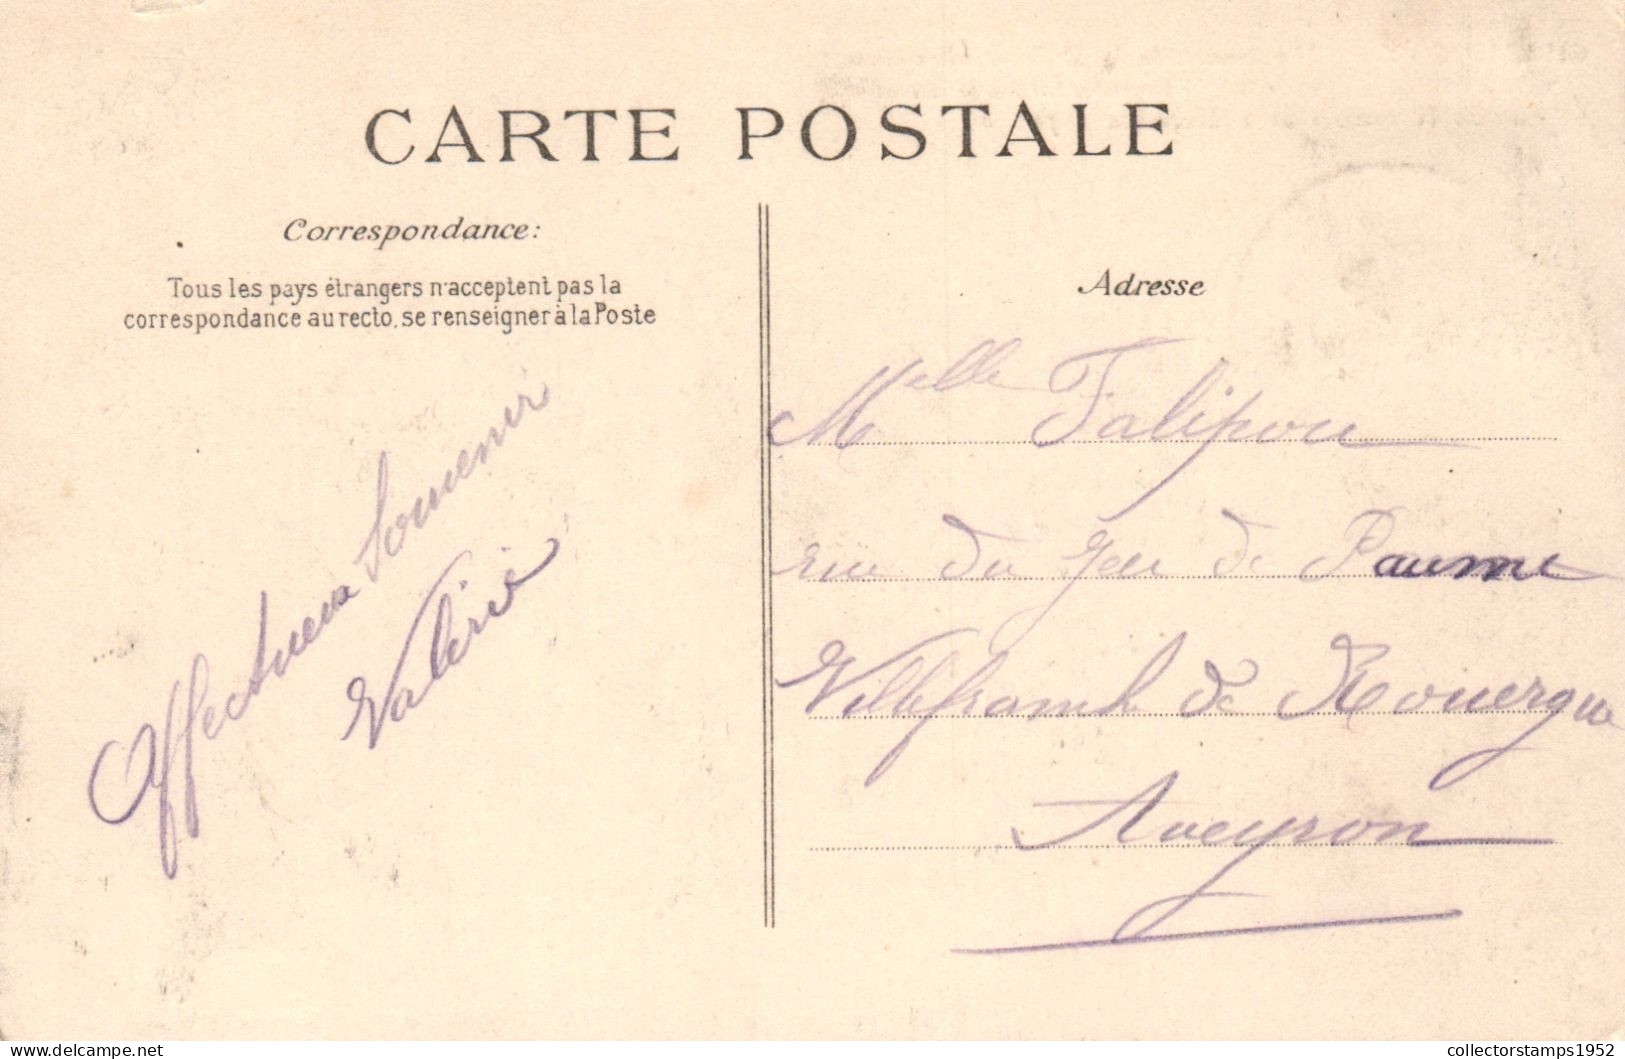 CARTE POSTALE
Correspondance:
Tous les pays étrangers n'acceptent pas la
correspondance au recto, se renseigner à la Poste
Affectueux Souvenir
Valérie
Adresse
Melle Falipou
rue du Jeu de Paume
Villefranche de Rouergue
Aveyron
delcampe.net
collectorstamps1952